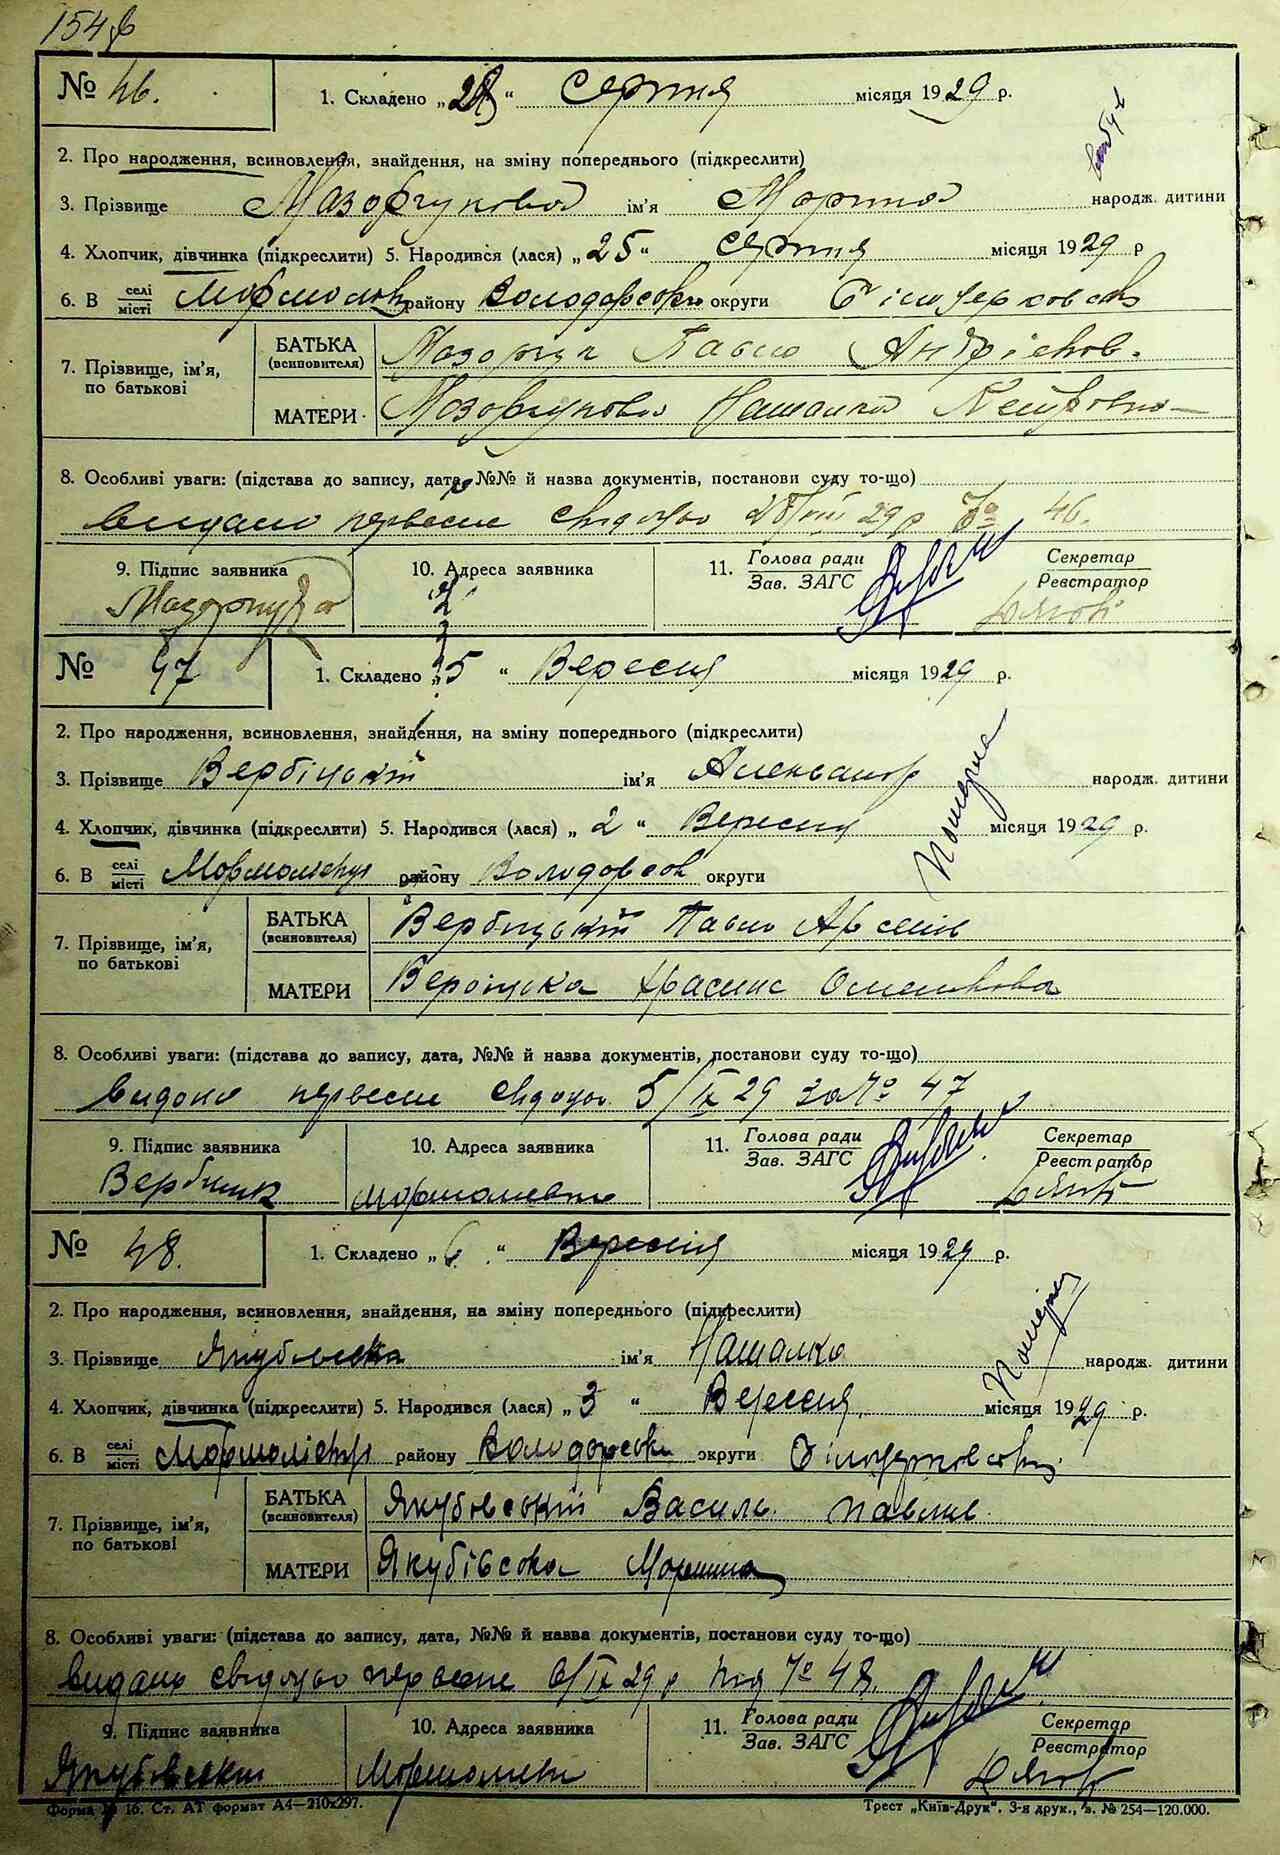 154
№ 46. 1. Складено „28“ Серпня місяця 1929 р.
2. Про народження, всиновлення, знайдення, на зміну попереднього (підкреслити)
3. Прізвище Мазорчукова ім'я Марина народж. дитини
4. Хлопчик, дівчинка (підкреслити) 5. Народився (лася) „25“ серпня місяця 1929 р
6. В селі/місті району Володарськ округи Білоцерковськ
7. Прізвище, ім'я, по батькові
БАТЬКА (всиновителя) Мазорчук Павло
МАТЕРИ Мазорчукова Наталка Петровна
8. Особливі уваги: (підстава до запису, дата, №№ й назва документів, постанови суду то-що)
видано первесне свідоцво 28/VIII 29 р № 46.
9. Підпис заявника 10. Адреса заявника 11. Голова ради / Зав. ЗАГС Секретар / Реєстратор
№ 47 1. Складено „5“ Вересня місяця 1929 р.
2. Про народження, всиновлення, знайдення, на зміну попереднього (підкреслити)
3. Прізвище Вербіцький ім'я Александр народж. дитини
Померла
4. Хлопчик, дівчинка (підкреслити) 5. Народився (лася) „2“ Вересня місяця 1929 р.
6. В селі/місті району Володарськ округи
7. Прізвище, ім'я, по батькові
БАТЬКА (всиновителя) Вербицький Павло Арсенів
МАТЕРИ
8. Особливі уваги: (підстава до запису, дата, №№ й назва документів, постанови суду то-що)
видано первесне свідоцво 5/IX 29 за № 47
9. Підпис заявника 10. Адреса заявника 11. Голова ради / Зав. ЗАГС Секретар / Реєстратор
№ 48. 1. Складено „6“ Вересня місяця 1929 р.
2. Про народження, всиновлення, знайдення, на зміну попереднього (підкреслити)
3. Прізвище Якубовска ім'я Наталка народж. дитини
4. Хлопчик, дівчинка (підкреслити) 5. Народився (лася) „3“ Вересня місяця 1929 р.
6. В селі/місті району Володарськ округи Білоцерковськ
7. Прізвище, ім'я, по батькові
БАТЬКА (всиновителя) Якубовський Василь Павлів
МАТЕРИ Якубівська Марина
8. Особливі уваги: (підстава до запису, дата, №№ й назва документів, постанови суду то-що)
видано свідоцво первесне 6/IX 29 р під № 48.
9. Підпис заявника 10. Адреса заявника 11. Голова ради / Зав. ЗАГС Секретар / Реєстратор
Якубовський
Форма № 16. Ст. АТ формат А4—210х297. Трест „Київ-Друк“. 3-я друк., з. № 254—120.000.